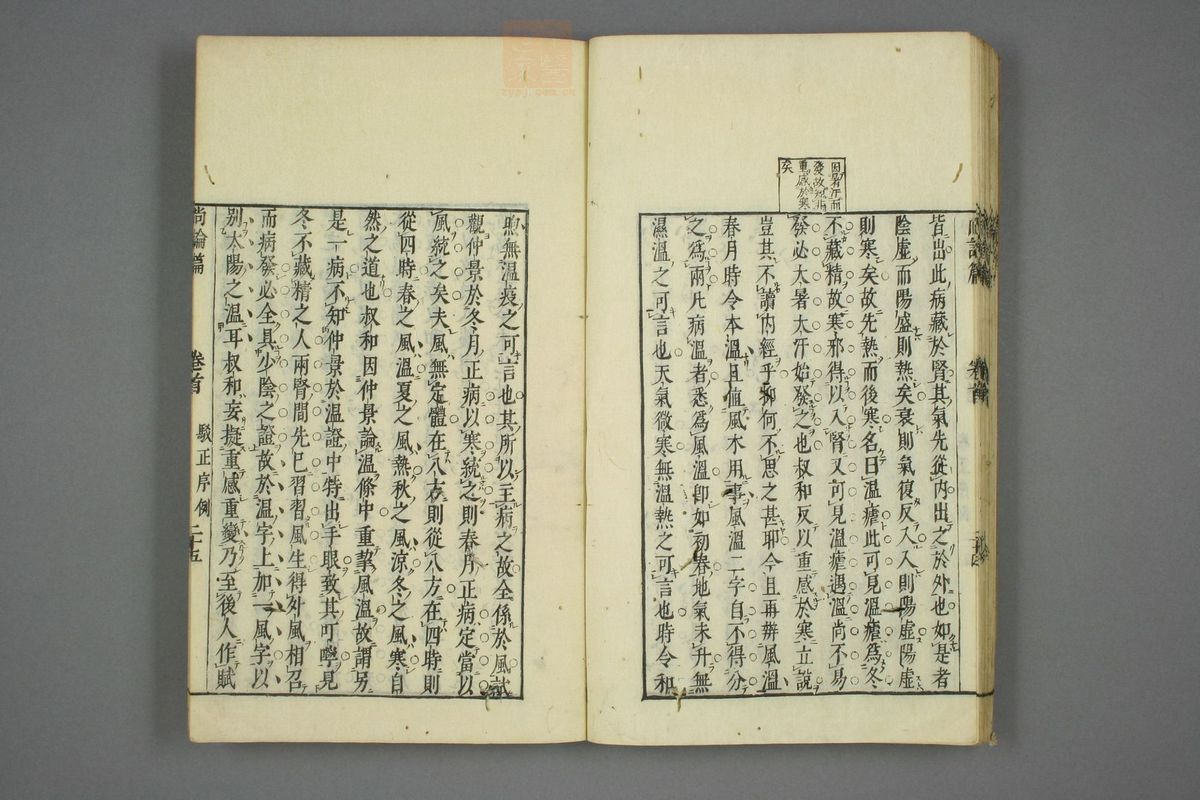 因暑汗而
發故知非
重感於寒
矣
皆出此病藏於腎其氣先從內出之於外也如是者
陰虛而陽盛則熱矣衰則氣復反入入則陽虛陽虛
則寒矣故先熱而後寒名曰溫瘧此可見溫瘧為冬
不藏精故寒邪得以入腎又可見溫瘧遇溫尚不易
發必大暑大汗始發之也叔和反以重感於寒立說
豈其不讀內經乎抑何不思之甚耶今且再辨風溫
春月時令本溫且值風木用事風溫二字自不得分
之為兩凡病溫者悉為風溫即如初春地氣未升無
濕溫之可言也天氣微寒無溫熱之可言也時令和
煦無溫疫之可言也其所以主病之故全係於風試
觀仲景於冬月正病以寒統之則春月正病定當以
風統之矣夫風無定體在八方則從八方在四時則
從四時春之風溫夏之風熱秋之風涼冬之風寒自
然之道也叔和因仲景論溫條中重挈風溫故謂另
是一病不知仲景於溫證中特出手眼致其叮嚀見
冬不藏精之人兩腎間先已習習風生得外風相召
而病發必全具少陰之證故於溫字上加一風字以
別太陽之溫耳叔和妄擬重感重變乃至後人作賦
尚論篇
卷首
駁正序例
二十五